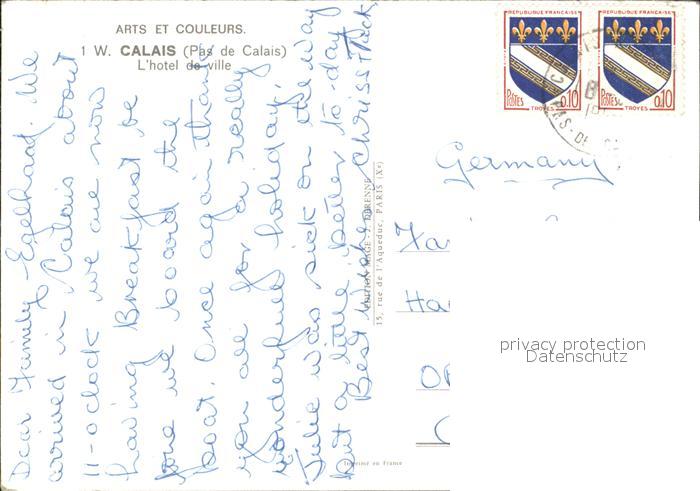 ARTS ET COULEURS.
1 W. CALAIS (Pas de Calais)
L'hotel de ville
Dear Family Egelhaaf. We
arrived in Calais about
11-o-clock we are now
having Breakfast be
fore we board the
boat. Once again thank
you all for a really
wonderfull holiday.
Julie was sick on the way
but a little better to-day
Best wishes Chriss + Jack,
15, rue de l'Aqueduc, PARIS (Xe)
Imprimé en France
RÉPUBLIQUE FRANÇAISE
POSTES 0,10
TROYES
RÉPUBLIQUE FRANÇAISE
POSTES 0,10
TROYES
Germany
Fa
Ha
privacy protection
Datenschutz